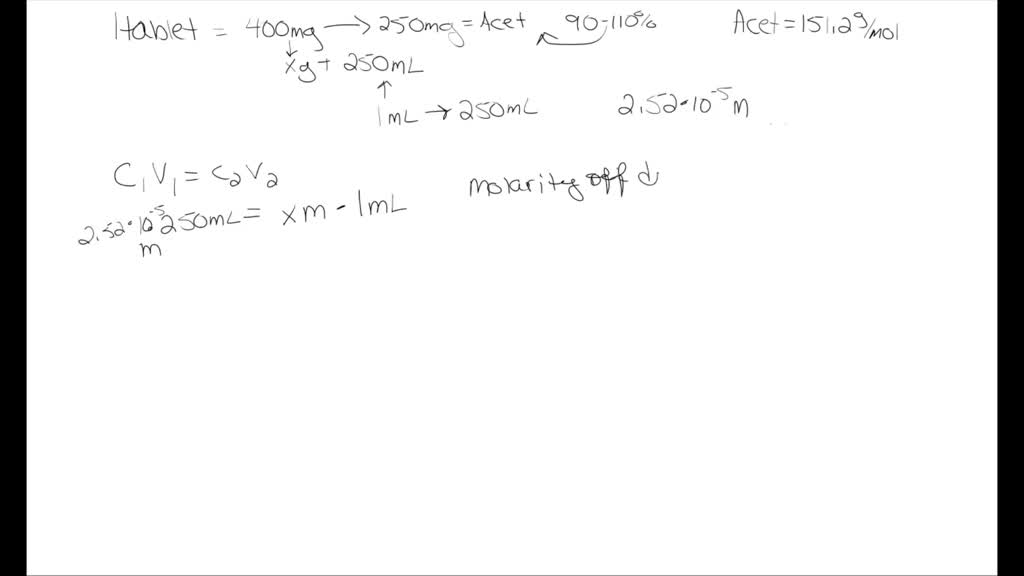 1 tablet = 400mg → 250mg = Acet 90-110% Acet = 151.2 g/mol
↓
xg + 250mL
↑
1mL → 250mL 2.52·10⁻⁵ m
C₁V₁ = C₂V₂ molarity off d
2.52·10⁻⁵ 250mL = xm - 1mL
m